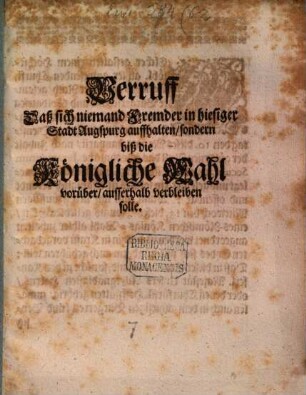 Verruff
Daß sich niemand Fremder in hiesiger
Stadt Augspurg auffhalten/sondern
biß die
Königliche Wahl
vorüber/ausserhalb verbleiben
solle.
BIBLIOTHECA
REGIA
MONACENSIS
7